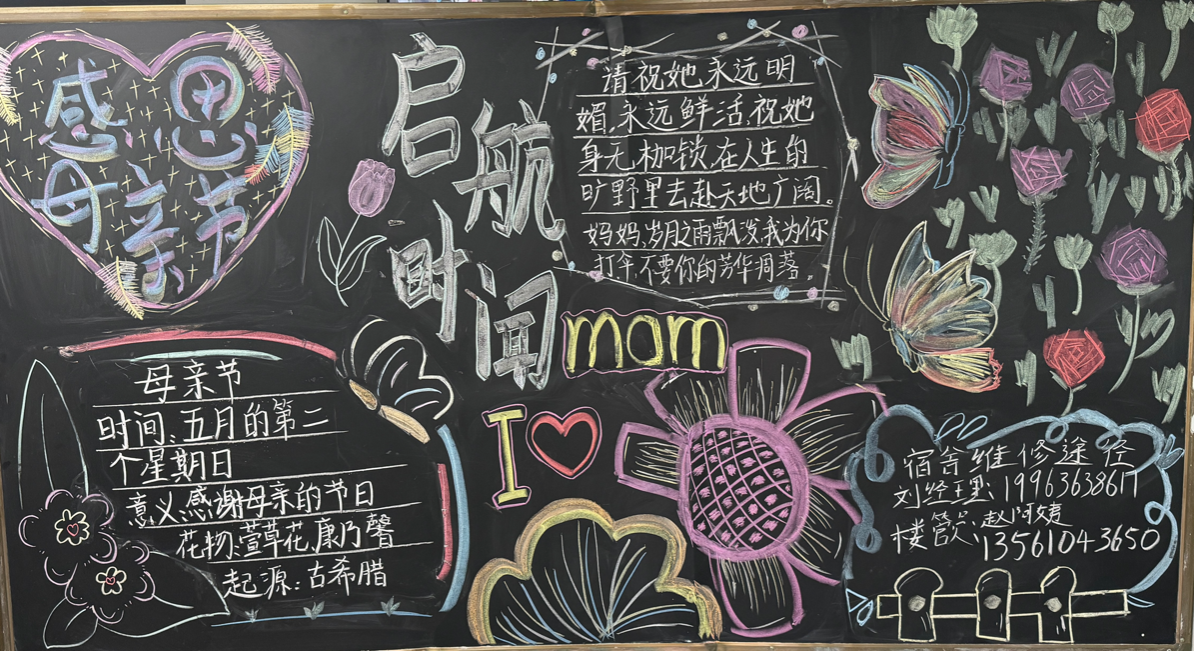 感恩
母亲节
启航
时间
请祝她永远明
媚,永远鲜活,祝她
身无枷锁,在人生的
旷野里去赴天地广阔。
妈妈,岁月之雨飘泼我为你
打伞,不要你的芳华凋落。
mom
I
母亲节
时间:五月的第二
个星期日
意义:感谢母亲的节日
花物:萱草花,康乃馨
起源:古希腊
宿舍维修途径
刘经理:19963638617
楼管:赵阿姨
13561043650